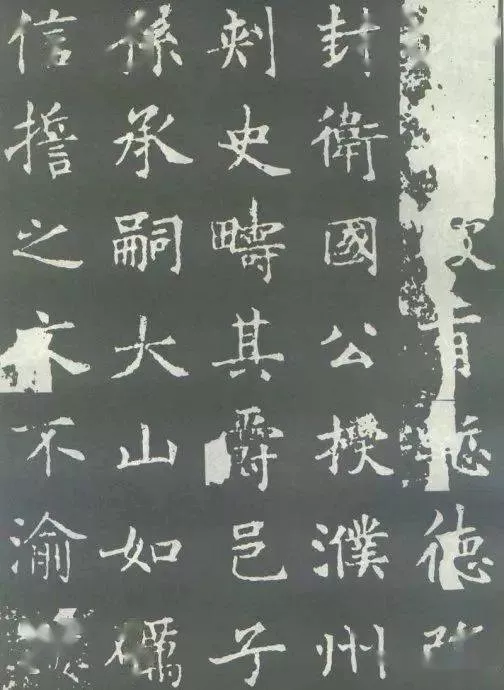 德
封衛國公揆濮州
刺史疇其爵邑子
孫承嗣大山如礪
信擔之不渝